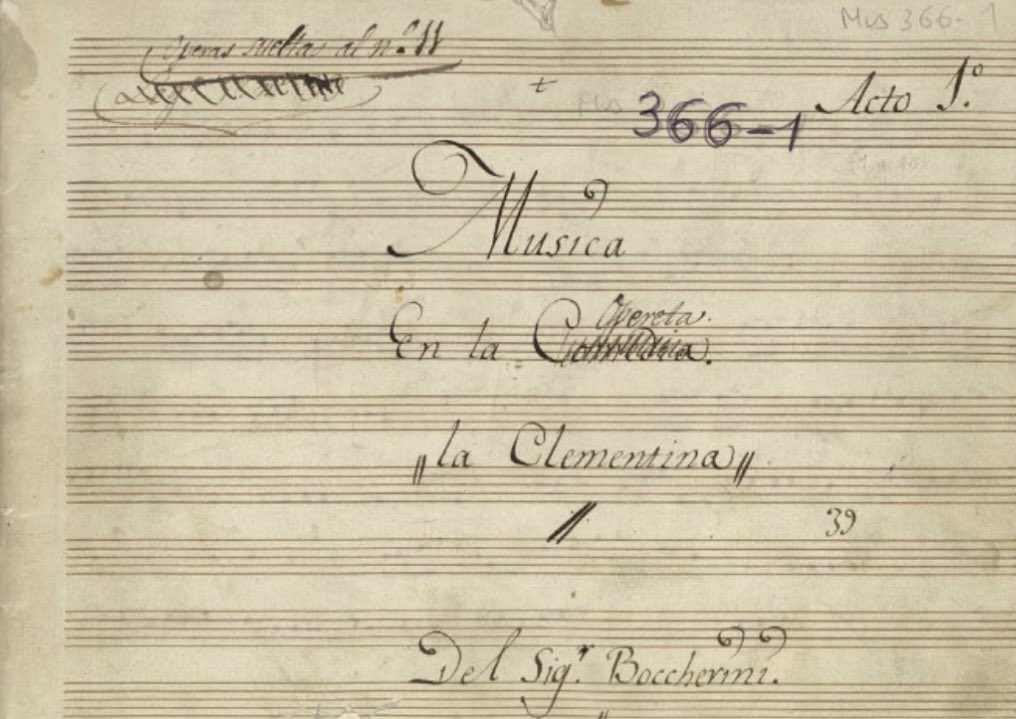 Mus 366-1
Operas sueltas al n.º 11
Acto 1.º
366-1
Musica
Opereta.
En la Comedia.
„la Clementina„
39
Del Sig.r Boccherini.